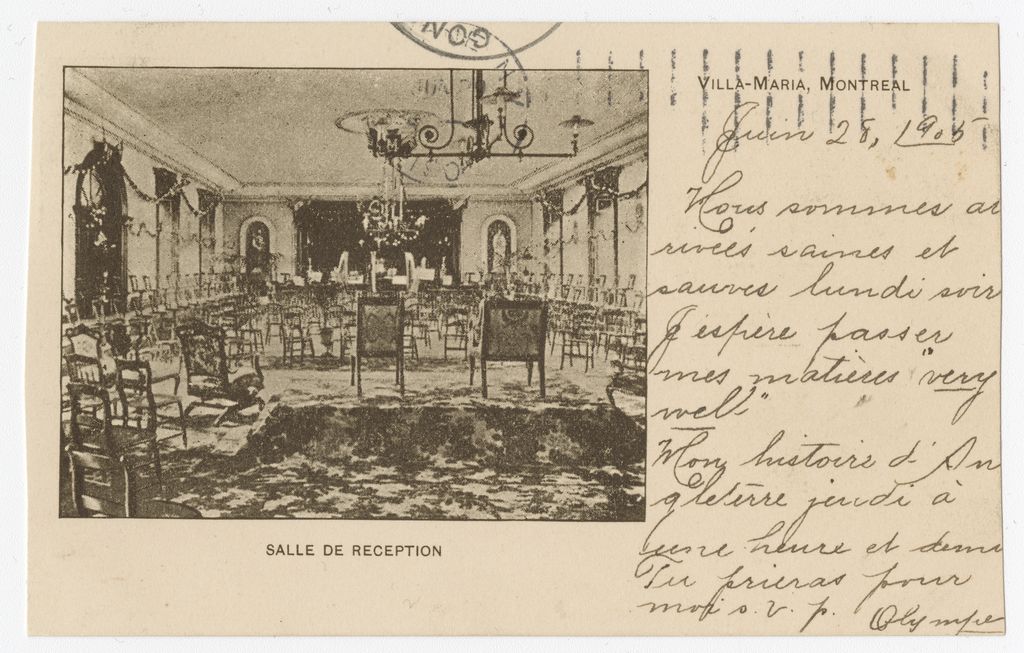 VILLA-MARIA, MONTREAL
Juin 28, 1905
Nous sommes ar
rivées saines et
sauves lundi soir
J'espère passer
mes matières "very
well"
Mon histoire d'An
gleterre jeudi à
une heure et demi
Tu prieras pour
moi s. v. p. Olympe
SALLE DE RECEPTION